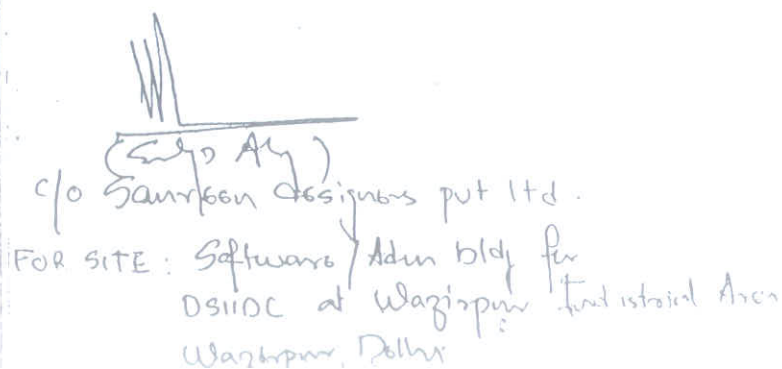 c/o designers pvt ltd.
FOR SITE : Software / Admn bldg for
DSIIDC at Wazirpur Industrial Area
Wazirpur, Delhi